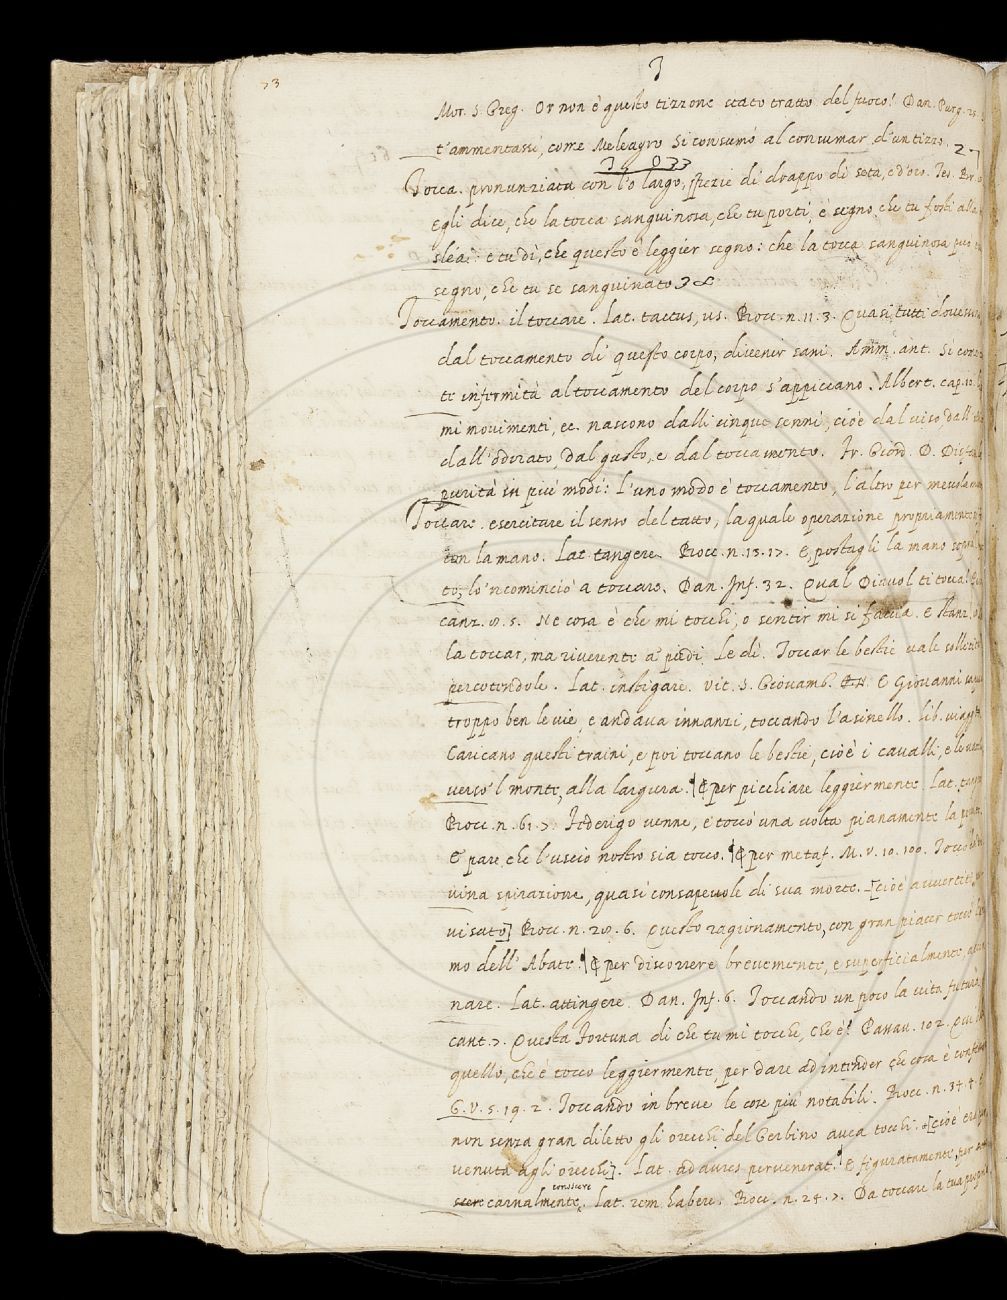 73
3
Mor. S. Greg. Or non è questo tizzone stato tratto del fuoco! Dan. Purg. 25.
t'ammentassi, come Meleagro Si consumò al consumar d'un tizzo.
Tocca. pronunziata con l'o largo, spezie di drappo di seta, e d'oro.
Egli dice, che la tocca sanguinosa, che tu porti, è segno, che tu fosti alla
e tu dì, che questo è leggier segno: che la tocca sanguinosa può
segno, che tu se sanguinato
Toccamento. il toccare. Lat. tactus, us. Bocc. n. 11. 3. Quasi, tutti dovesso
dal toccamento di questo corpo, divenir sani. Amm. ant. Si come
te infermità al toccamento del corpo s'appiccano. Albert. cap. 10.
mi movimenti, ec. nascono dalli cinque senni, cioè dal viso, dall'
dall'odorato, dal gusto, e dal toccamento. Fr. Giord. D.
purità in più modi: l'uno modo è toccamento, l'altro per
Toccare. esercitare il senso del tatto, la quale operazione propriamente
con la mano. Lat. tangere. Bocc. n. 13. 17. E, postagli la mano sopra
to, lo 'ncominciò a toccare. Dan. Inf. 32. Qual Diavol ti tocca!
canz. 8. 5. Ne cosa è che mi tocchi, o sentir mi si faccia. E stanz.
la toccar, ma riverente a' piedi Le dì. Toccar le bestie vale
percotendole. Lat. instigare. Vit. S. Giovamb. E Giovanni
troppo ben le vie, e andava innanzi, toccando l'asinello. Lib. viagg.
Caricano questi traini, e poi toccano le bestie, cioè i cavalli, e
verso 'l monte, alla largura. per picchiare leggiermente. Lat.
Bocc. n. 61. 7. Federigo venne, e toccò una volta pianamente la
E pare, che l'uscio nostro sia tocco. per metaf. M. V. 10. 100. Tocco
vina spirazione, quasi consapevole di sua morte. [cioè avvertito,
visato] Bocc. n. 28. 6. Questo ragionamento, con gran piacer toccò
mo dell'Abate. per discorrere brevemente, e superficialmente,
nare. Lat. attingere. Dan. Inf. 6. Toccando un poco la vita futura
cant. 7. Questa Fortuna di che tu mi tocche, che è! Passav. 102.
quello, che è tocco leggiermente, per dare ad intender che cosa è
G. V. 5. 19. 2. Toccando in breve le cose più notabili. Bocc. n. 34. 4.
non senza gran diletto gli orecchi del Gerbino avea tocchi. [cioè era
venuta agli orecchi]. Lat. ad aures pervenerat. E figuratamente, per
conoscere
carnalmente. Lat. rem habere. Bocc. n. 24. 7. Da toccare la tua